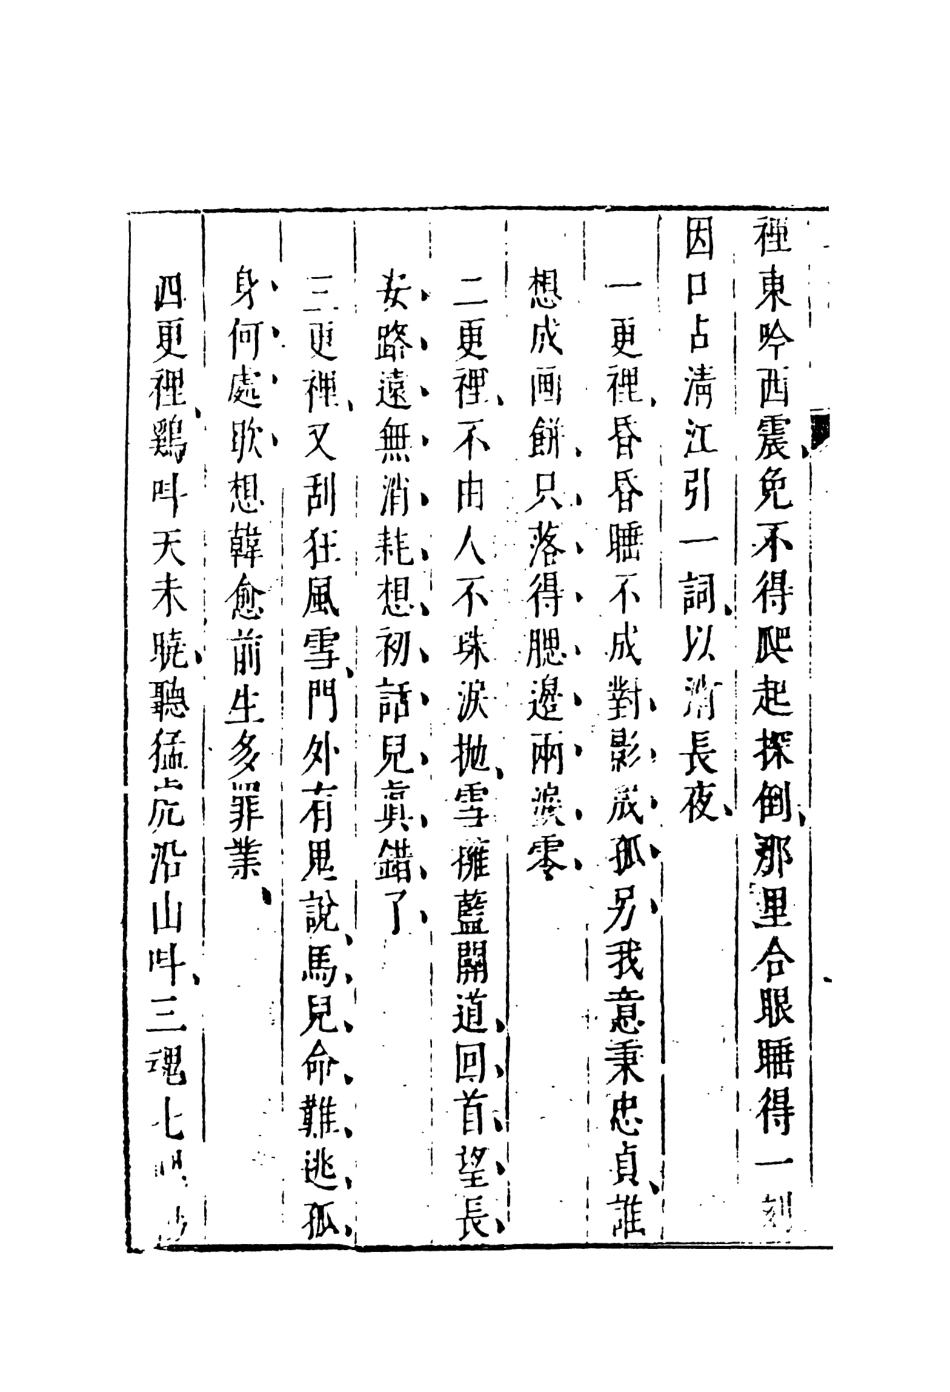 裡東吟西震免不得爬起探倒那里合眼睡得一刻
因口占清江引一詞以消長夜
一更裡昏昏睡不成對影成孤另我意秉忠貞誰
想成画餅只落得腮邊兩淚零
二更裡不由人不珠淚抛雪擁藍關道回首望長
安路遠無消耗想初話兒眞錯了
三更裡又刮狂風雪門外有鬼說馬兒命難逃孤
身何處歇想韓愈前生多罪業
四更裡鷄叫天未曉聽猛虎沿山叫三魂七